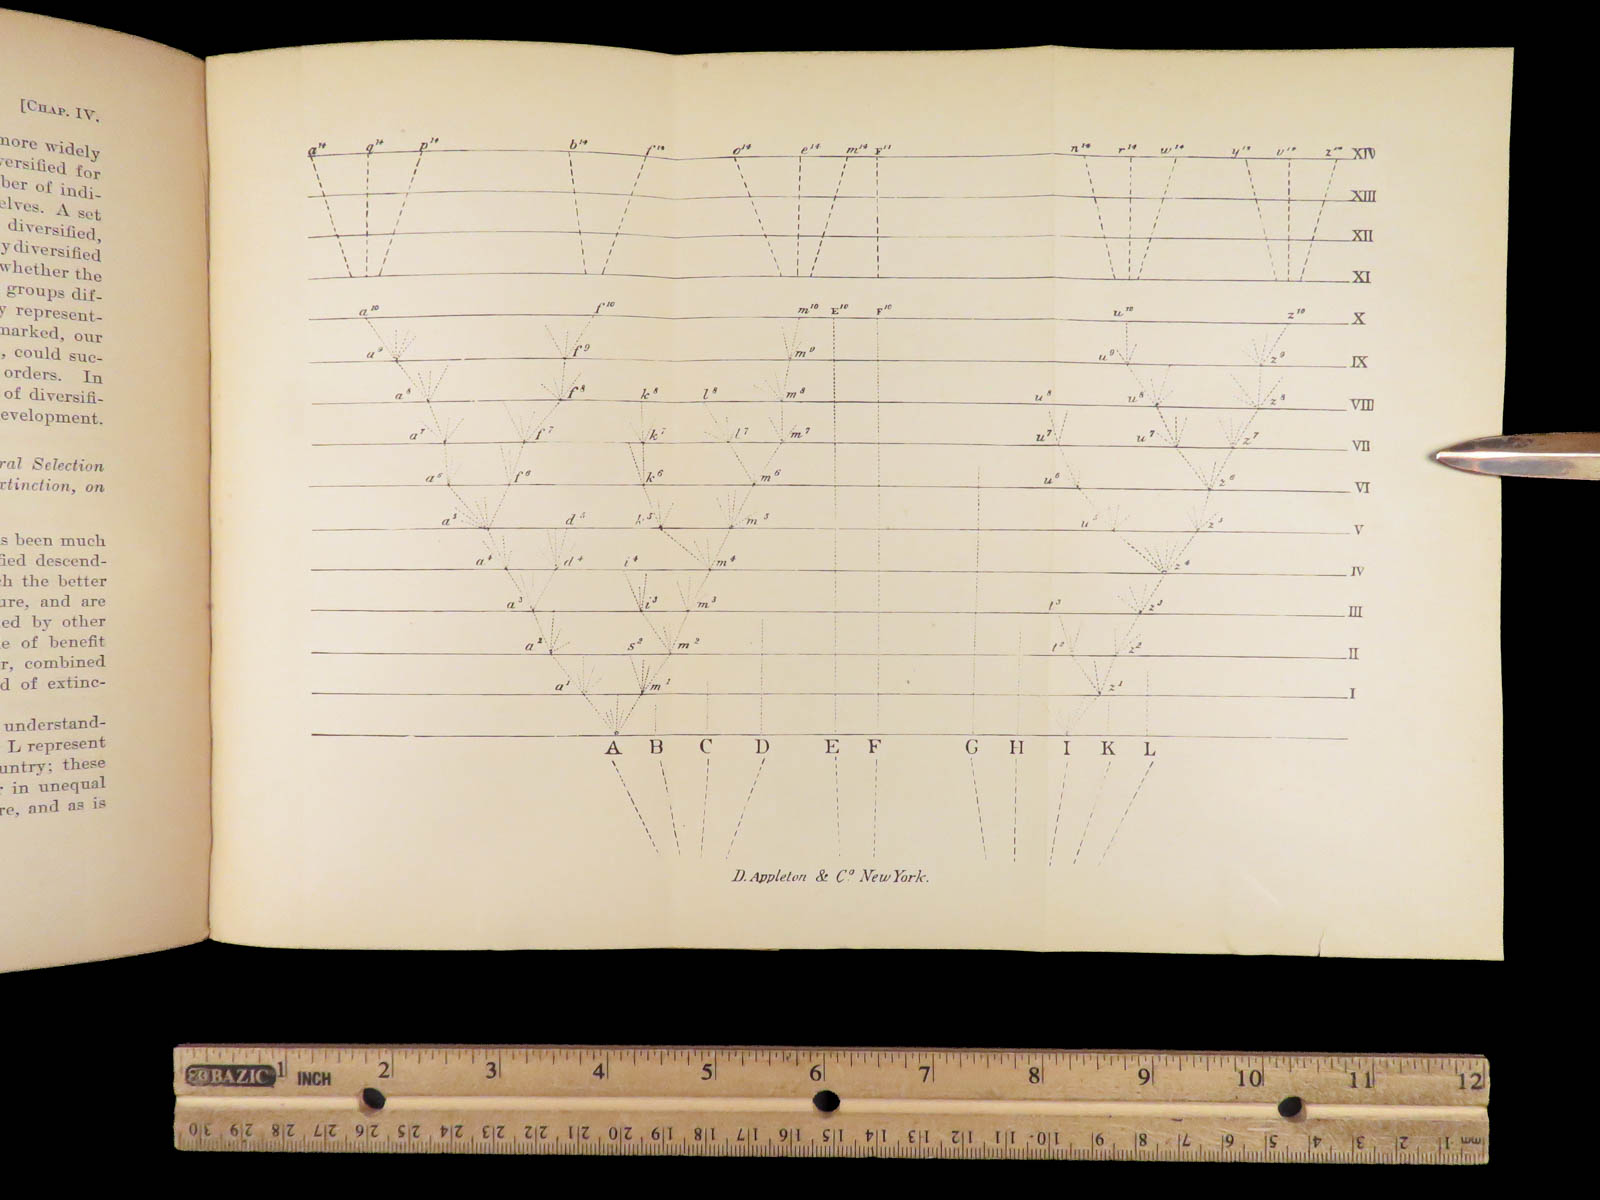 [CHAP. IV.
more widely
versified for
ber of indi-
elves. A set
diversified,
y diversified
whether the
groups dif-
y represent-
marked, our
, could suc-
orders. In
of diversifi-
evelopment.
ral Selection
xtinction, on
s been much
fied descend-
ch the better
ure, and are
ed by other
e of benefit
r, combined
d of extinc-
understand-
L represent
untry; these
r in unequal
re, and as is
a¹⁴ q¹⁴ p¹⁴ b¹⁴ f¹⁴ o¹⁴ e¹⁴ m¹⁴ F¹⁴ n¹⁴ r¹⁴ w¹⁴ y¹⁴ v¹⁴ z¹⁴ XIV
XIII
XII
XI
a¹⁰ f¹⁰ m¹⁰ E¹⁰ F¹⁰ u¹⁰ z¹⁰ X
a⁹ f⁹ m⁹ u⁹ z⁹ IX
a⁸ f⁸ k⁸ l⁸ m⁸ u⁸ u⁸ z⁸ VIII
a⁷ f⁷ k⁷ l⁷ m⁷ u⁷ u⁷ z⁷ VII
a⁶ f⁶ k⁶ m⁶ u⁶ z⁶ VI
a⁵ d⁵ k⁵ m⁵ u⁵ z⁵ V
a⁴ d⁴ i⁴ m⁴ z⁴ IV
a³ i³ m³ t³ z³ III
a² s² m² t² z² II
a¹ m¹ z¹ I
A B C D E F G H I K L
D. Appleton & Cº. New York.
BAZIC 1 INCH 2 3 4 5 6 7 8 9 10 11 12
30 29 28 27 26 25 24 23 22 21 20 19 18 17 16 15 14 13 12 11 10 9 8 7 6 5 4 3 2 1 mm